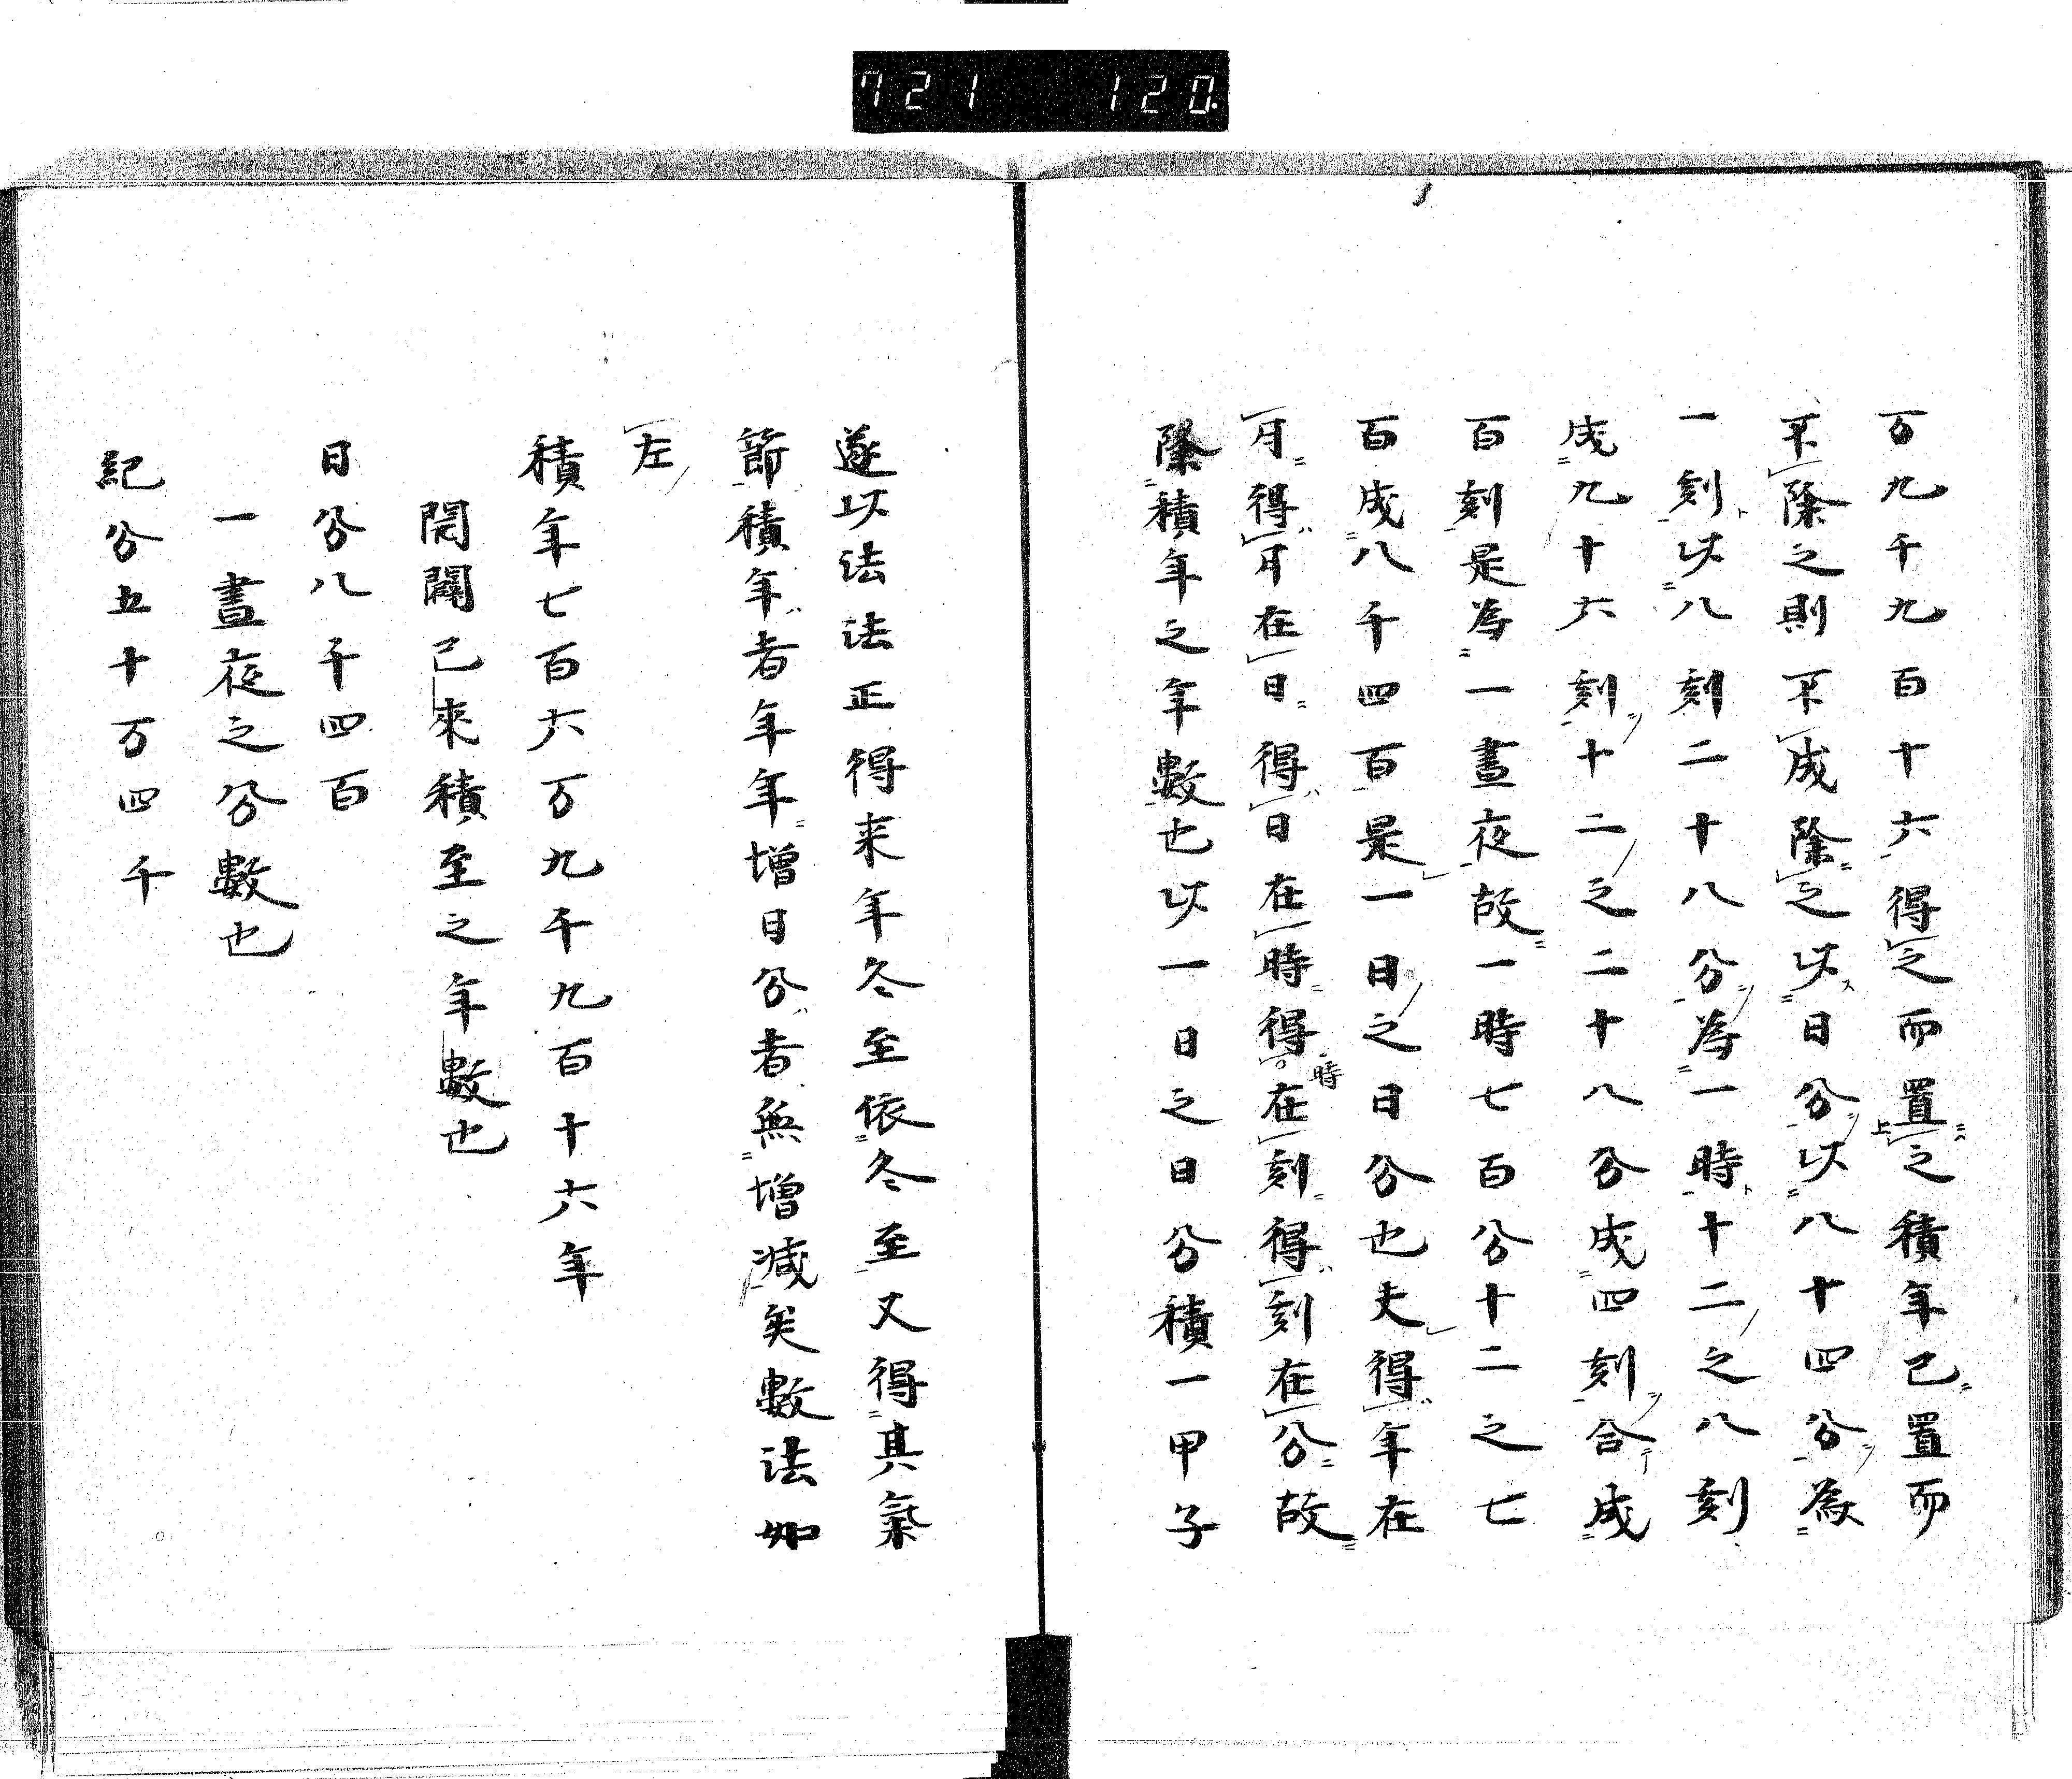 721 120.
万九千九百十六得之而置之積年已置而
不除之則不成除之以日分以八十四分為
一刻以八刻二十八分為一時十二之八刻
成九十六刻十二之二十八分成四刻合成
百刻是為一晝夜故一時七百分十二之七
百成八千四百是一日之日分也夫得年在
月得月在日得日在時得時在刻得刻在分故
除積年之年數也以一日之日分積一甲子
遂以法法正得来年冬至依冬至又得其氣
節積年者年年増日分者無増减矣數法如
左
積年七百六万九千九百十六年
開闢已來積至之年數也
日分八千四百
一晝夜之分數也
紀分五十万四千